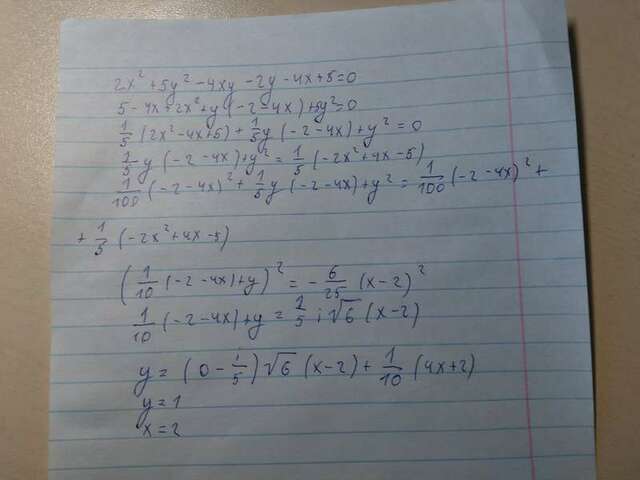 2x² + 5y² - 4xy - 2y - 4x + 5 = 0
5 - 4x + 2x² + y(-2 - 4x) + 5y² = 0
1/5 (2x² - 4x + 5) + 1/5 y (-2 - 4x) + y² = 0
1/5 y (-2 - 4x) + y² = 1/5 (-2x² + 4x - 5)
1/100 (-2 - 4x)² + 1/5 y (-2 - 4x) + y² = 1/100 (-2 - 4x)² +
+ 1/5 (-2x² + 4x - 5)
(1/10 (-2 - 4x) + y)² = - 6/25 (x - 2)²
1/10 (-2 - 4x) + y = 1/5 i √6 (x - 2)
y = (0 - i/5) √6 (x - 2) + 1/10 (4x + 2)
y = 1
x = 2